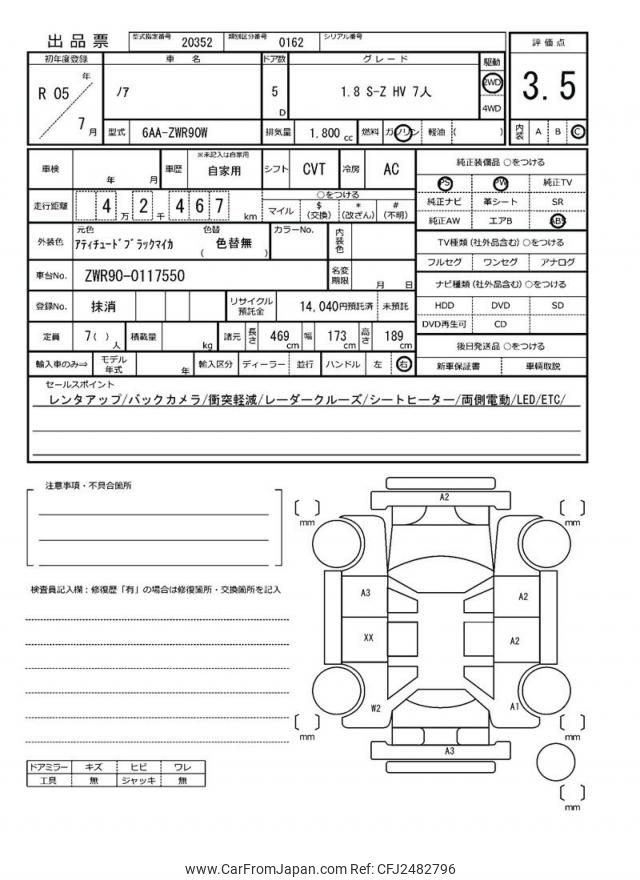 出品票
型式指定番号 20352 類別区分番号 0162 シリアル番号
初年度登録 車名 ドア数 グレード 駆動 評価点
R 05 年 7 月 ノア 5 D 1.8 S-Z HV 7人 2WD 4WD 3.5
型式 6AA-ZWR90W 排気量 1,800 cc 燃料 ガソリン 軽油 ( ) 内装 A B C
車検 年 月 車歴 ※未記入は自家用 自家用 シフト CVT 冷房 AC
走行距離 4 万 2 千 4 6 7 km ○をつける
マイル $ (交換) * (改ざん) # (不明)
外装色 元色 アティチュードブラックマイカ 色替 ( 色替無 ) カラーNo. 内装色
車台No. ZWR90-0117550 名変期限 月 日
登録No. 抹消 リサイクル預託金 14,040円預託済 未預託
定員 7( ) 人 積載量 kg 諸元 長さ 469 cm 幅 173 cm 高さ 189 cm
輸入車のみ⇒ モデル年式 年 輸入区分 ディーラー 並行 ハンドル 左 右
純正装備品 ○をつける
PS PW 純正TV
純正ナビ 革シート SR
純正AW エアB ABS
TV種類 (社外品含む) ○をつける
フルセグ ワンセグ アナログ
ナビ種類 (社外品含む) ○をつける
HDD DVD SD
DVD再生可 CD
後日発送品 ○をつける
新車保証書 車輌取説
セールスポイント
レンタアップ/バックカメラ/衝突軽減/レーダークルーズ/シートヒーター/両側電動/LED/ETC/
注意事項・不具合箇所
検査員記入欄：修復歴「有」の場合は修復箇所・交換箇所を記入
ドアミラー キズ ヒビ ワレ
工具 無 ジャッキ 無
A2
mm mm
A3 A2
XX A2
W2 A1
mm mm
A3
mm
www.CarFromJapan.com Ref: CFJ2482796